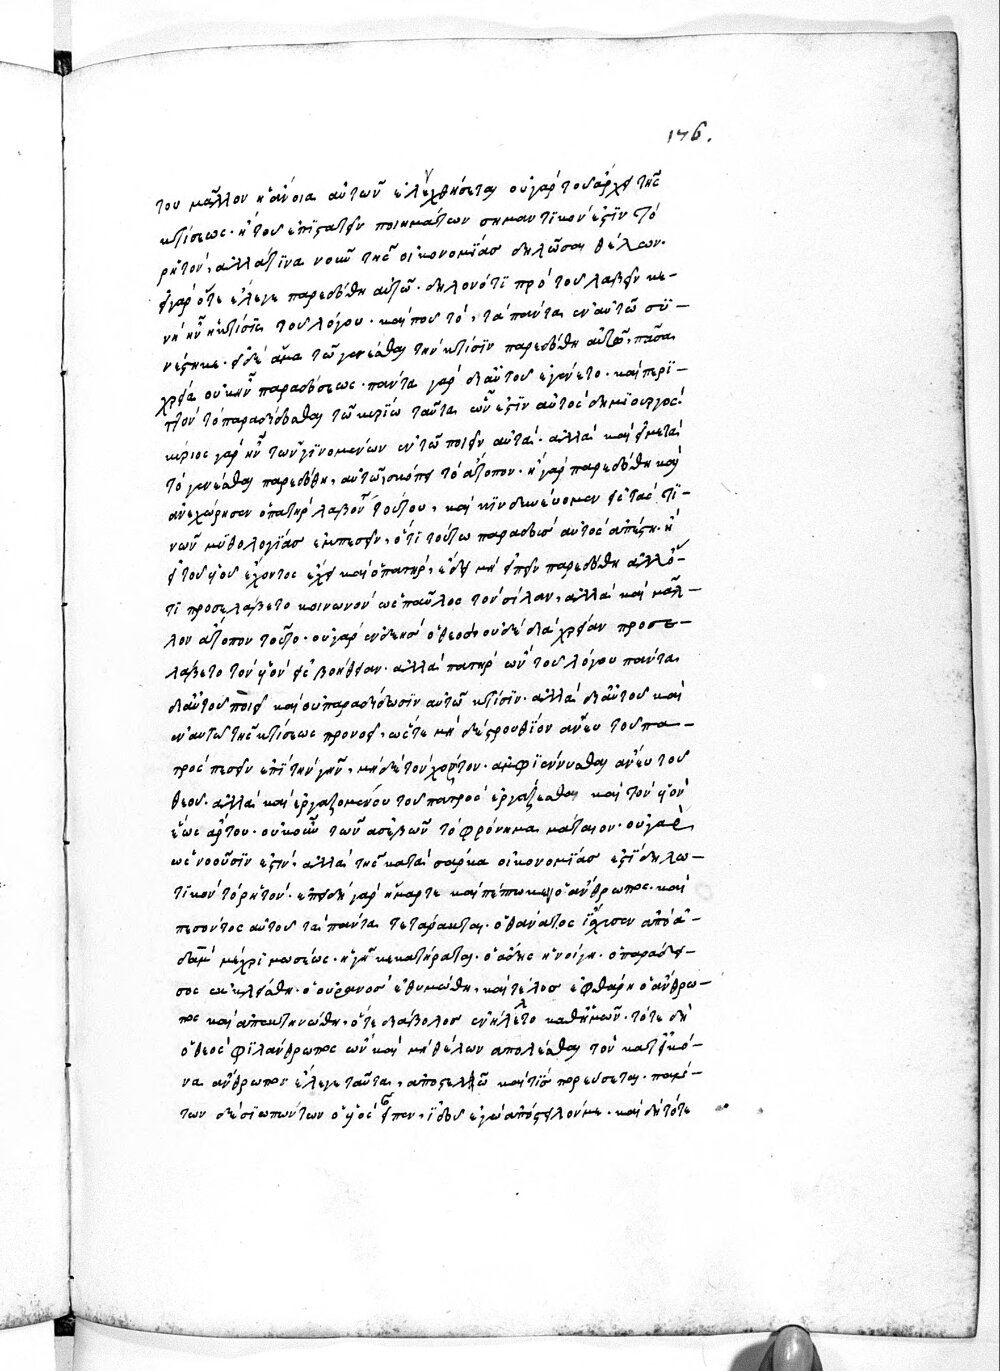 176.
του μᾶλλον ἡ ἄνοια αὐτῶν ἐλεγχθήσεται οὐ γὰρ τοῦ ἄρχειν τῆς
κτίσεως· ἢ τοῦ ἐπιστατεῖν ποιημάτων σημαντικόν ἐστιν τὸ
ῥητόν, ἀλλά τινα νοῦν τῆς οἰκονομίας δηλῶσαι θέλων·
εἰ γὰρ ὅτε ἔλεγε παρεδόθη αὐτῷ· δηλονότι πρὸ τοῦ λαβεῖν κε-
νὴ ἦν ἡ κτίσις τοῦ λόγου· καὶ ποῦ τό, τὰ πάντα ἐν αὐτῷ συ-
νέστηκε· εἰ δὲ ἅμα τῷ γενέσθαι τὴν κτίσιν παρεδόθη αὐτῷ πᾶσα
χρεία οὐκ ἦν παραδόσεως· πάντα γὰρ δι' αὐτοῦ ἐγένετο· καὶ περι-
τὸν τὸ παραδίδοσθαι τῷ κυρίῳ ταῦτα ὧν ἐστιν αὐτὸς δημιουργός·
κύριος γὰρ ἦν τῶν γινομένων ἐν τῷ ποιεῖν αὐτά· ἀλλὰ καὶ εἰ μετὰ
τὸ γενέσθαι παρεδόθη αὐτῷ σκόπει τὸ ἄτοπον· εἰ γὰρ παρεδόθη καὶ
ἀνεχώρησεν ὁ πατὴρ λαβόντος τούτου, καὶ κινδυνεύομεν εἰς τάς τι-
νῶν μυθολογίας ἐμπεσεῖν, ὅτι τούτῳ παραδοὺς αὐτὸς ἀπέστη· ἢ
εἰ τοῦ υἱοῦ ἔχοντος ἔχει καὶ ὁ πατήρ, ἔδει μὴ εἰπεῖν παρεδόθη ἀλλ' ὅ-
τι προσελάβετο κοινωνὸν ὡς παῦλος τὸν σίλαν, ἀλλὰ καὶ μᾶλ-
λον ἄτοπον τοῦτο· οὐ γὰρ ἐνδεὴς ὁ θεὸς οὐδὲ διὰ χρείαν προσε-
λάβετο τὸν υἱὸν εἰς βοήθειαν· ἀλλὰ πατὴρ ὢν τοῦ λόγου πάντα
δι' αὐτοῦ ποιεῖ καὶ οὐ παραδίδωσιν αὐτῷ κτίσιν· ἀλλὰ δι' αὐτοῦ καὶ
ἐν αὐτῷ τῆς κτίσεως προνοεῖ, ὥστε μὴ δὲ στρουθίον ἄνευ τοῦ πα-
τρὸς πεσεῖν ἐπὶ τὴν γῆν, μὴ δὲ τὸν χόρτον· ἀμφιέννυσθαι ἄνευ τοῦ
θεοῦ· ἀλλὰ καὶ ἐργαζομένου τοῦ πατρὸς ἐργάζεσθαι καὶ τὸν υἱὸν
ἕως ἄρτου· οὐκοῦν τῶν ἀσεβῶν τὸ φρόνημα μάταιον· οὐ γάρ,
ὡς νοοῦσίν ἐστιν, ἀλλὰ τῆς κατὰ σάρκα οἰκονομίας ἐστὶ δηλω-
τικὸν τὸ ῥητόν· ἐπειδὴ γὰρ ἥμαρτε καὶ πέπτωκεν ὁ ἄνθρωπος· καὶ
πεσόντος αὐτοῦ τὰ πάντα τετάρακται· ὁ θάνατος ἴσχυσεν ἀπὸ ἀ-
δὰμ μέχρι μωσέως· ἡ γῆ κεκατήραται· ὁ ᾅδης ἠνοίγη· ὁ παράδει-
σος ἐκλείσθη· ὁ οὐρανὸς ἐθυμώθη, καὶ τέλος ἐφθάρη ὁ ἄνθρω-
πος καὶ ἀπεκτηνώθη, ὅτε διάβολος ἐνήλλετο καθ' ἡμῶν· τότε δὴ
ὁ θεὸς φιλάνθρωπος ὢν καὶ μὴ θέλων ἀπολέσθαι τὸν κατ' εἰκό-
να ἄνθρωπον ἔλεγε ταῦτα, ἀποστελῶ καὶ τίς πορεύσεται· πάν-
των δὲ σιωπώντων ὁ υἱὸς εἶπεν, ἰδοὺ ἐγὼ ἀπόστειλόν με· καὶ δὴ τότε